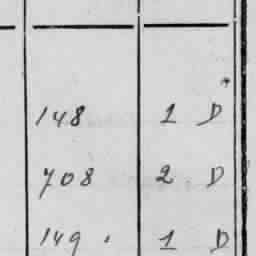 148 1 D
708 2 D
149 . 1 D